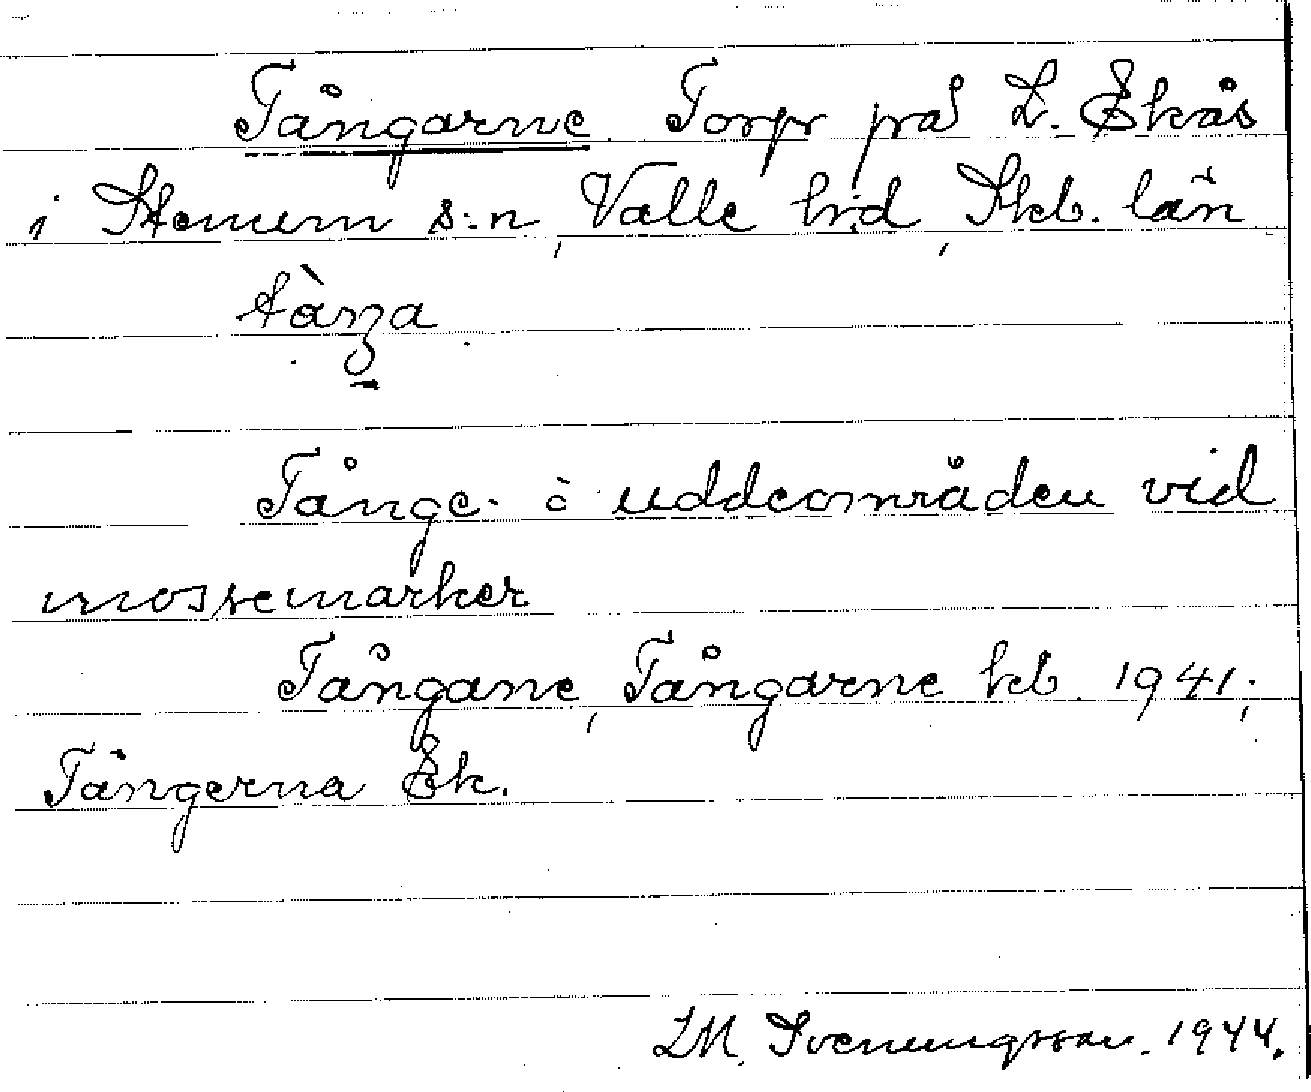 Tångarne Torp på L. Ekås
i Stenum s:n, Valle h:d, Skb. län
tàŋa
Tånge- o uddeområden vid
mossemarker
Tångane, Tångarne kb. 1941;
Tångerna Ek.
LM. Svenungsson. 1944.